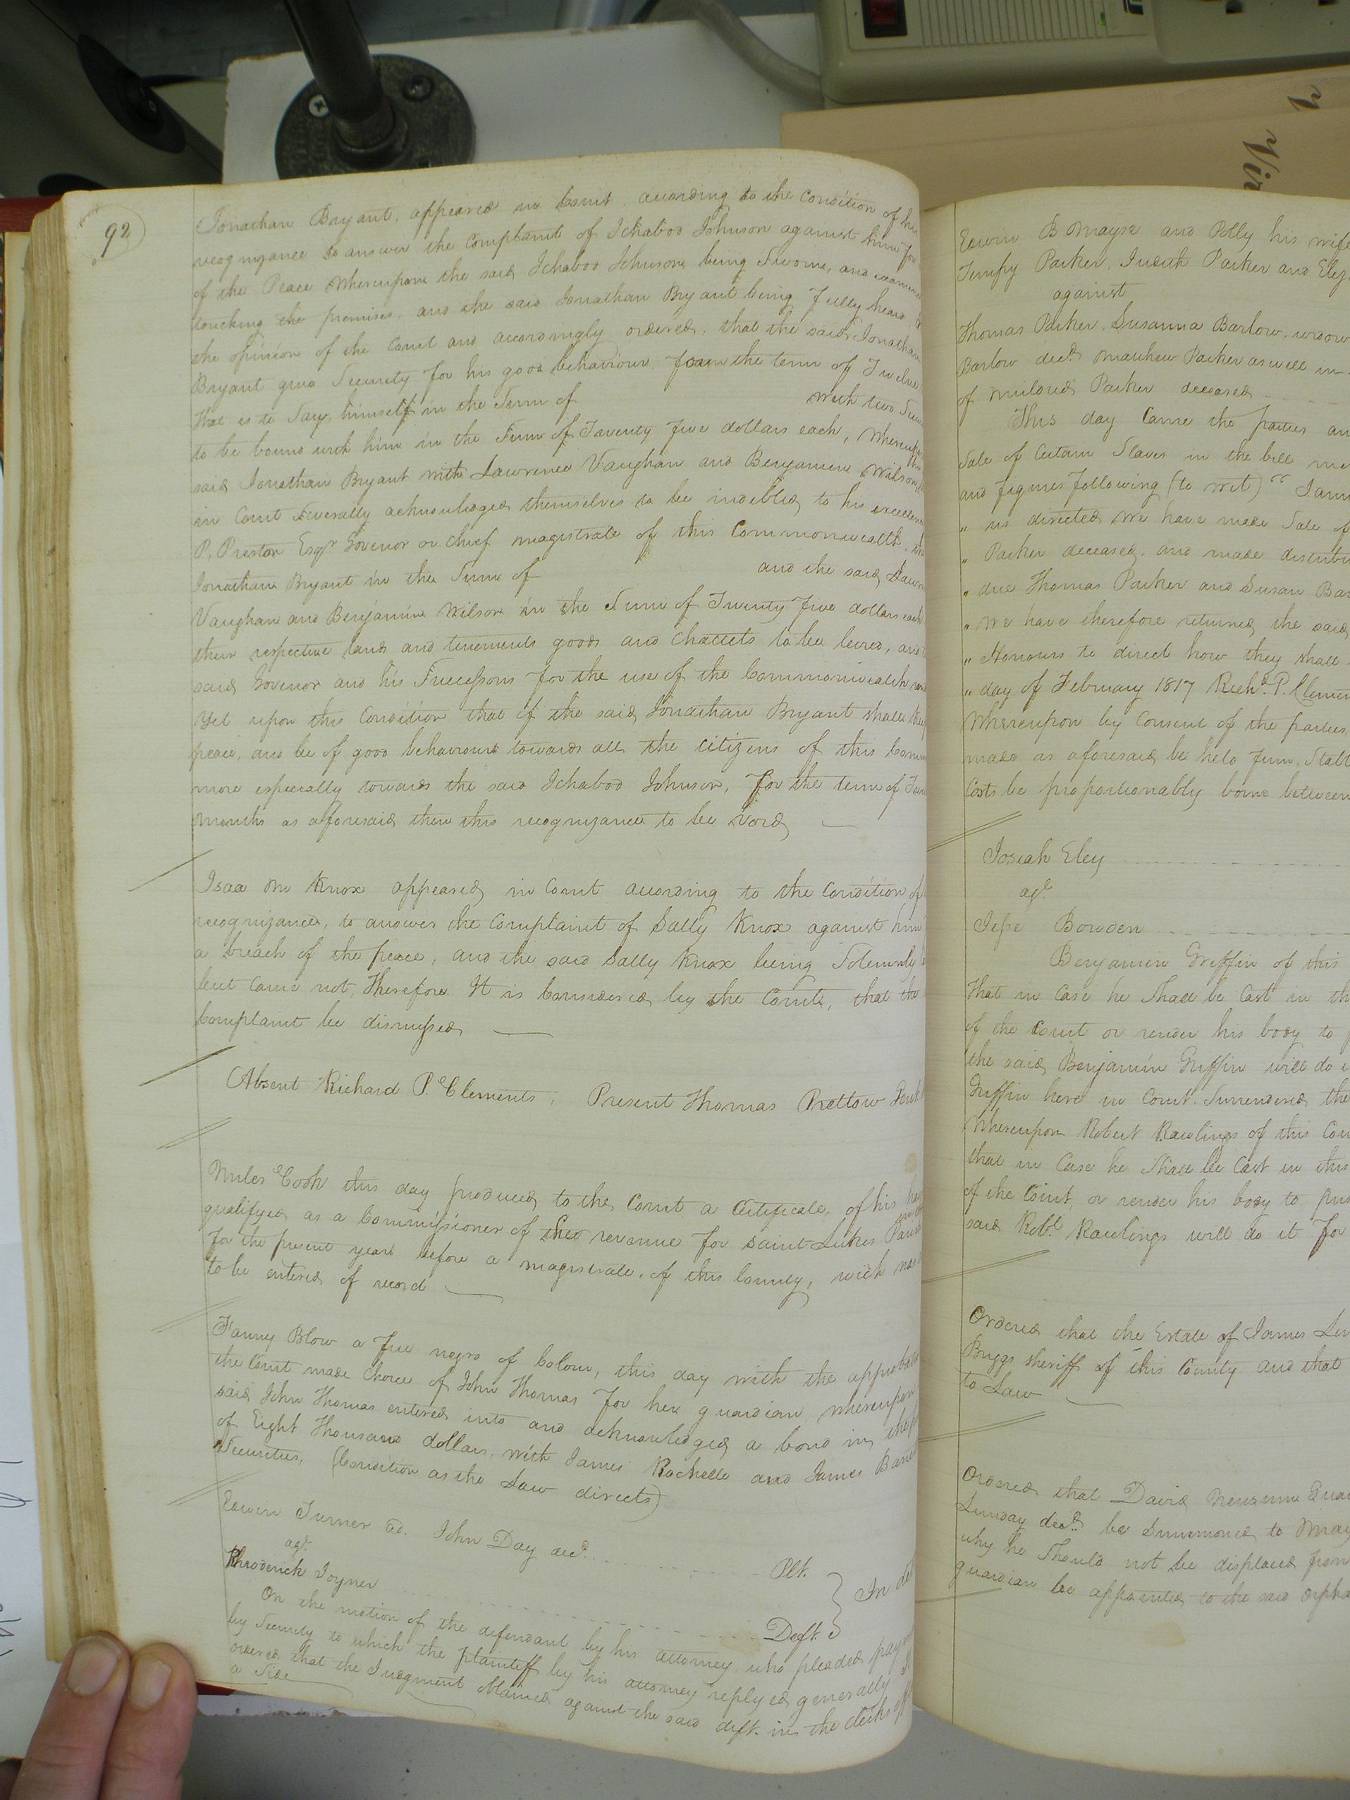 92
Jonathan Bryant, appeared in Court according to the Condition of his
recognizance to answer the Complaint of Ichabod Johnson against him for
of the Peace Whereupon the said Ichabod Johnson being Sworn, and
touching the premises, and the said Jonathan Bryant being fully heard
the opinion of the Court and accordingly ordered, that the said Jonathan
Bryant give Security for his good behaviour for the term of Twelve
that is to Say, himself in the Sum of with two
to be bound with him in the Sum of Twenty five dollars each, Whereupon
said Jonathan Bryant with Lawrence Vaughan and Benjamin Wilson
in Court Severally acknowledged themselves to be indebted to his
P. Preston Esqr. Govenor or chief magistrate of this Commonwealth, the
Jonathan Bryant in the Sum of and the said
Vaughan and Benjamin Wilson in the Sum of Twenty five dollars each
their respective lands and tenements goods and Chattels to be levied, and
said Govenor and his Successors for the use of the Commonwealth
Yet upon this Condition that if the said Jonathan Bryant shall
peace, and be of good behaviour towards all the Citizens of this
more especially towards the said Ichabod Johnson, for the term of
months as aforesaid then this recognizance to be Void
Knox appeared in Court according to the Condition of
recognizance, to answer the Complaint of Sally Knox against him
a breach of the peace, and the said Sally Knox being Solemnly
but Came not, Therefore It is Considered by the Court, that the
Complaint be dismissed
Absent Richard P. Clements, Present Thomas Pretlow
Miles Cook this day produced to the Court a Certificate, of his
qualified as a Commissioner of the revenue for Saint Lukes
for the present year before a magistrate, of this County, which
to be entered of record
Fanny Blow a free negro of Colour, this day with the
the Court made Choice of John Thomas for her guardian whereupon
said John Thomas entered into and acknowledged a bond in the
of Eight Thousand dollars, with James Rochelle and James
Securities, (Condition as the Law directs)
Edwin Turner ad. John Day decd. Plt.
agt.
Rhroderick Joyner Deft. In
On the motion of the defendant by his attorney who pleaded
by Security to which the plaintiff by his attorney replyed generally
ordered that the Judgment obtained against the said deft. in the clerks
a Side
Edwin B. Mayse and Polly his wife
Tempy Parker, Judith Parker and
against
Thomas Parker, Susanna Barlow, widow
Barlow decd. Matthew Parker as well in
of Mildred Parker deceased
This day Came the parties
Sale of Certain Slaves in the bill
and figures following (to wit) "
" as directed we have made Sale of
" Parker deceased, and made
" due Thomas Parker and Susan
" We have therefore returned the said
" Honours to direct how they shall
" day of February 1817 Richd. P.
Whereupon by Consent of the parties
made as aforesaid be held firm,
Costs be proportionably borne between
Josiah Eley
agt.
Jesse Bowden
Benjamin Griffin of this
that in Case he Shall be Cast in
of the Court or render his body to
the said Benjamin Griffin will do
Griffin here in Court Surrendered the
Whereupon Robert Rawlings of this
that in Case he Shall be Cast in this
of the Court, or render his body to
said Robt. Rawlings will do it for
Ordered that the Estate of James
Briggs sheriff of this County and that
to Law
Ordered that David Newsum
decd. be Summoned to
why he Should not be displaced from
guardian be appointed to the said